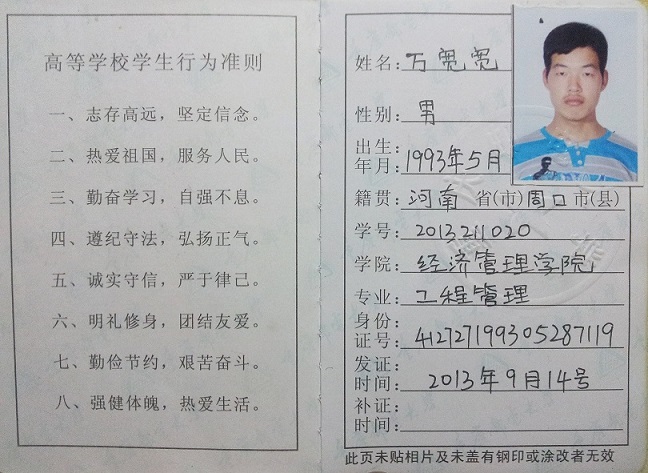 高等学校学生行为准则
一、志存高远，坚定信念。
二、热爱祖国，服务人民。
三、勤奋学习，自强不息。
四、遵纪守法，弘扬正气。
五、诚实守信，严于律己。
六、明礼修身，团结友爱。
七、勤俭节约，艰苦奋斗。
八、强健体魄，热爱生活。
姓名：万宽宽
性别：男
出生
年月：1993年5月
籍贯：河南 省(市)周口市(县)
学号：2013211020
学院：经济管理学院
专业：工程管理
身份
证号：412727199305287119
发证
时间：2013年9月14号
补证
时间：
此页未贴相片及未盖有钢印或涂改者无效